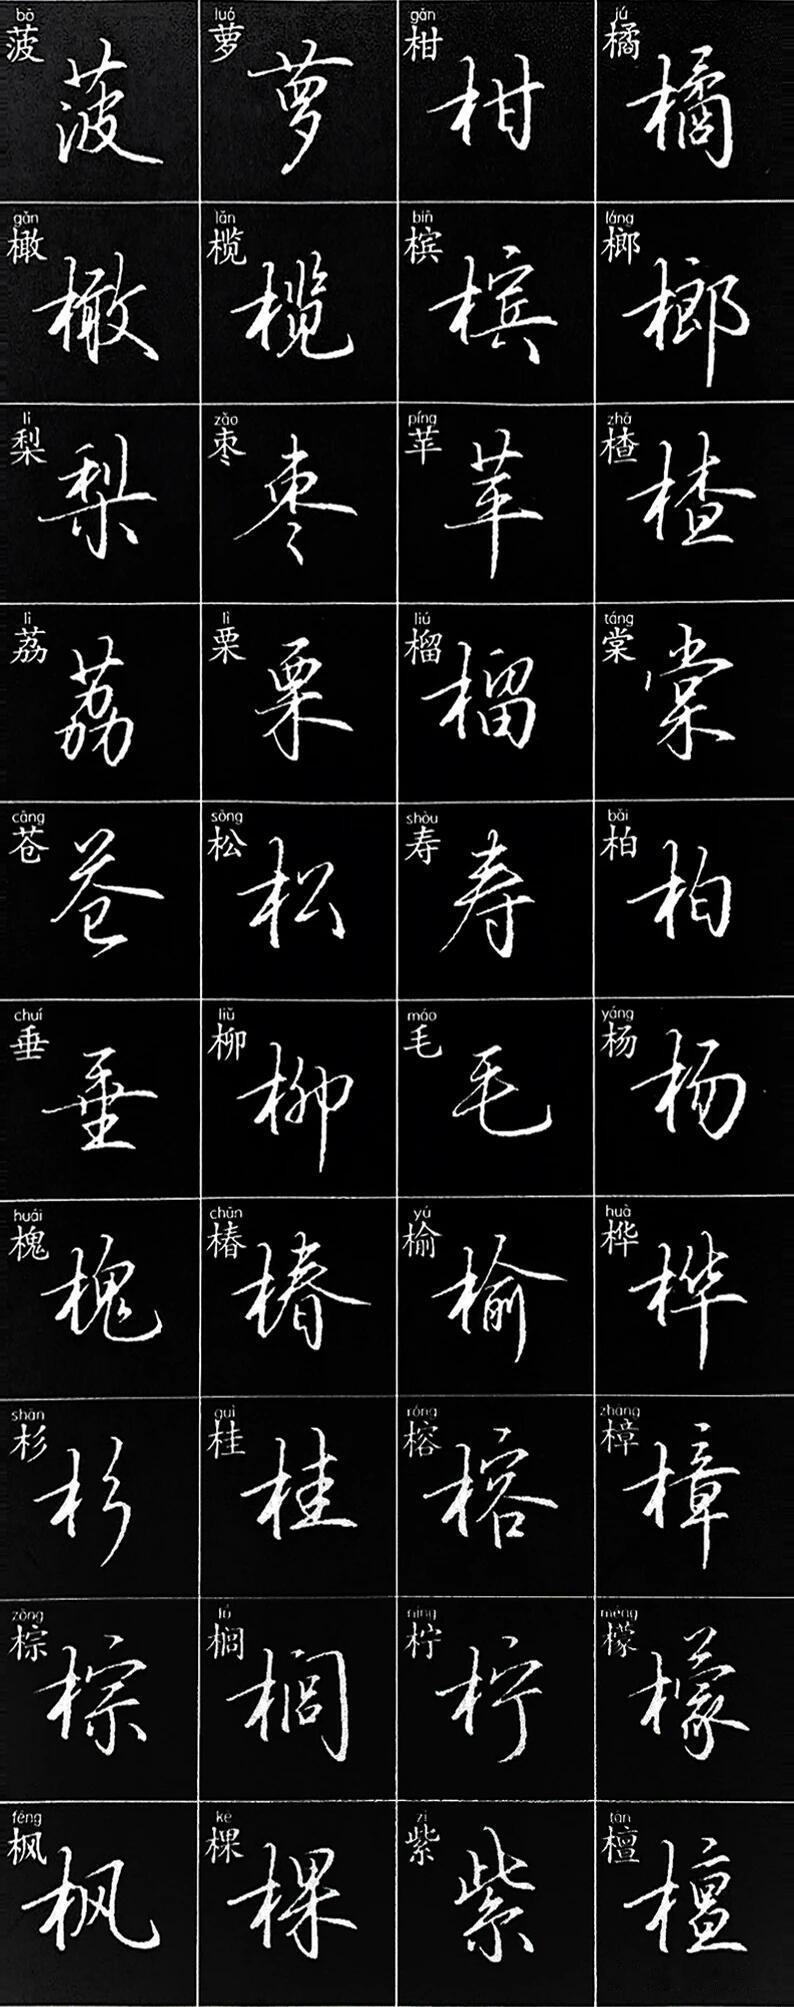 bō luó gān jú
菠 萝 柑 橘
菠 萝 柑 橘
gǎn lǎn bīn láng
橄 榄 槟 榔
橄 榄 槟 榔
lí zǎo píng zhā
梨 枣 苹 楂
梨 枣 苹 楂
lì lì liú táng
荔 栗 榴 棠
荔 栗 榴 棠
cāng sōng shòu bǎi
苍 松 寿 柏
苍 松 寿 柏
chuí liǔ máo yáng
垂 柳 毛 杨
垂 柳 毛 杨
huái chūn yú huà
槐 椿 榆 桦
槐 椿 榆 桦
shān guì róng zhāng
杉 桂 榕 樟
杉 桂 榕 樟
zōng lǘ níng méng
棕 榈 柠 檬
棕 榈 柠 檬
fēng kē zǐ tán
枫 棵 紫 檀
枫 棵 紫 檀